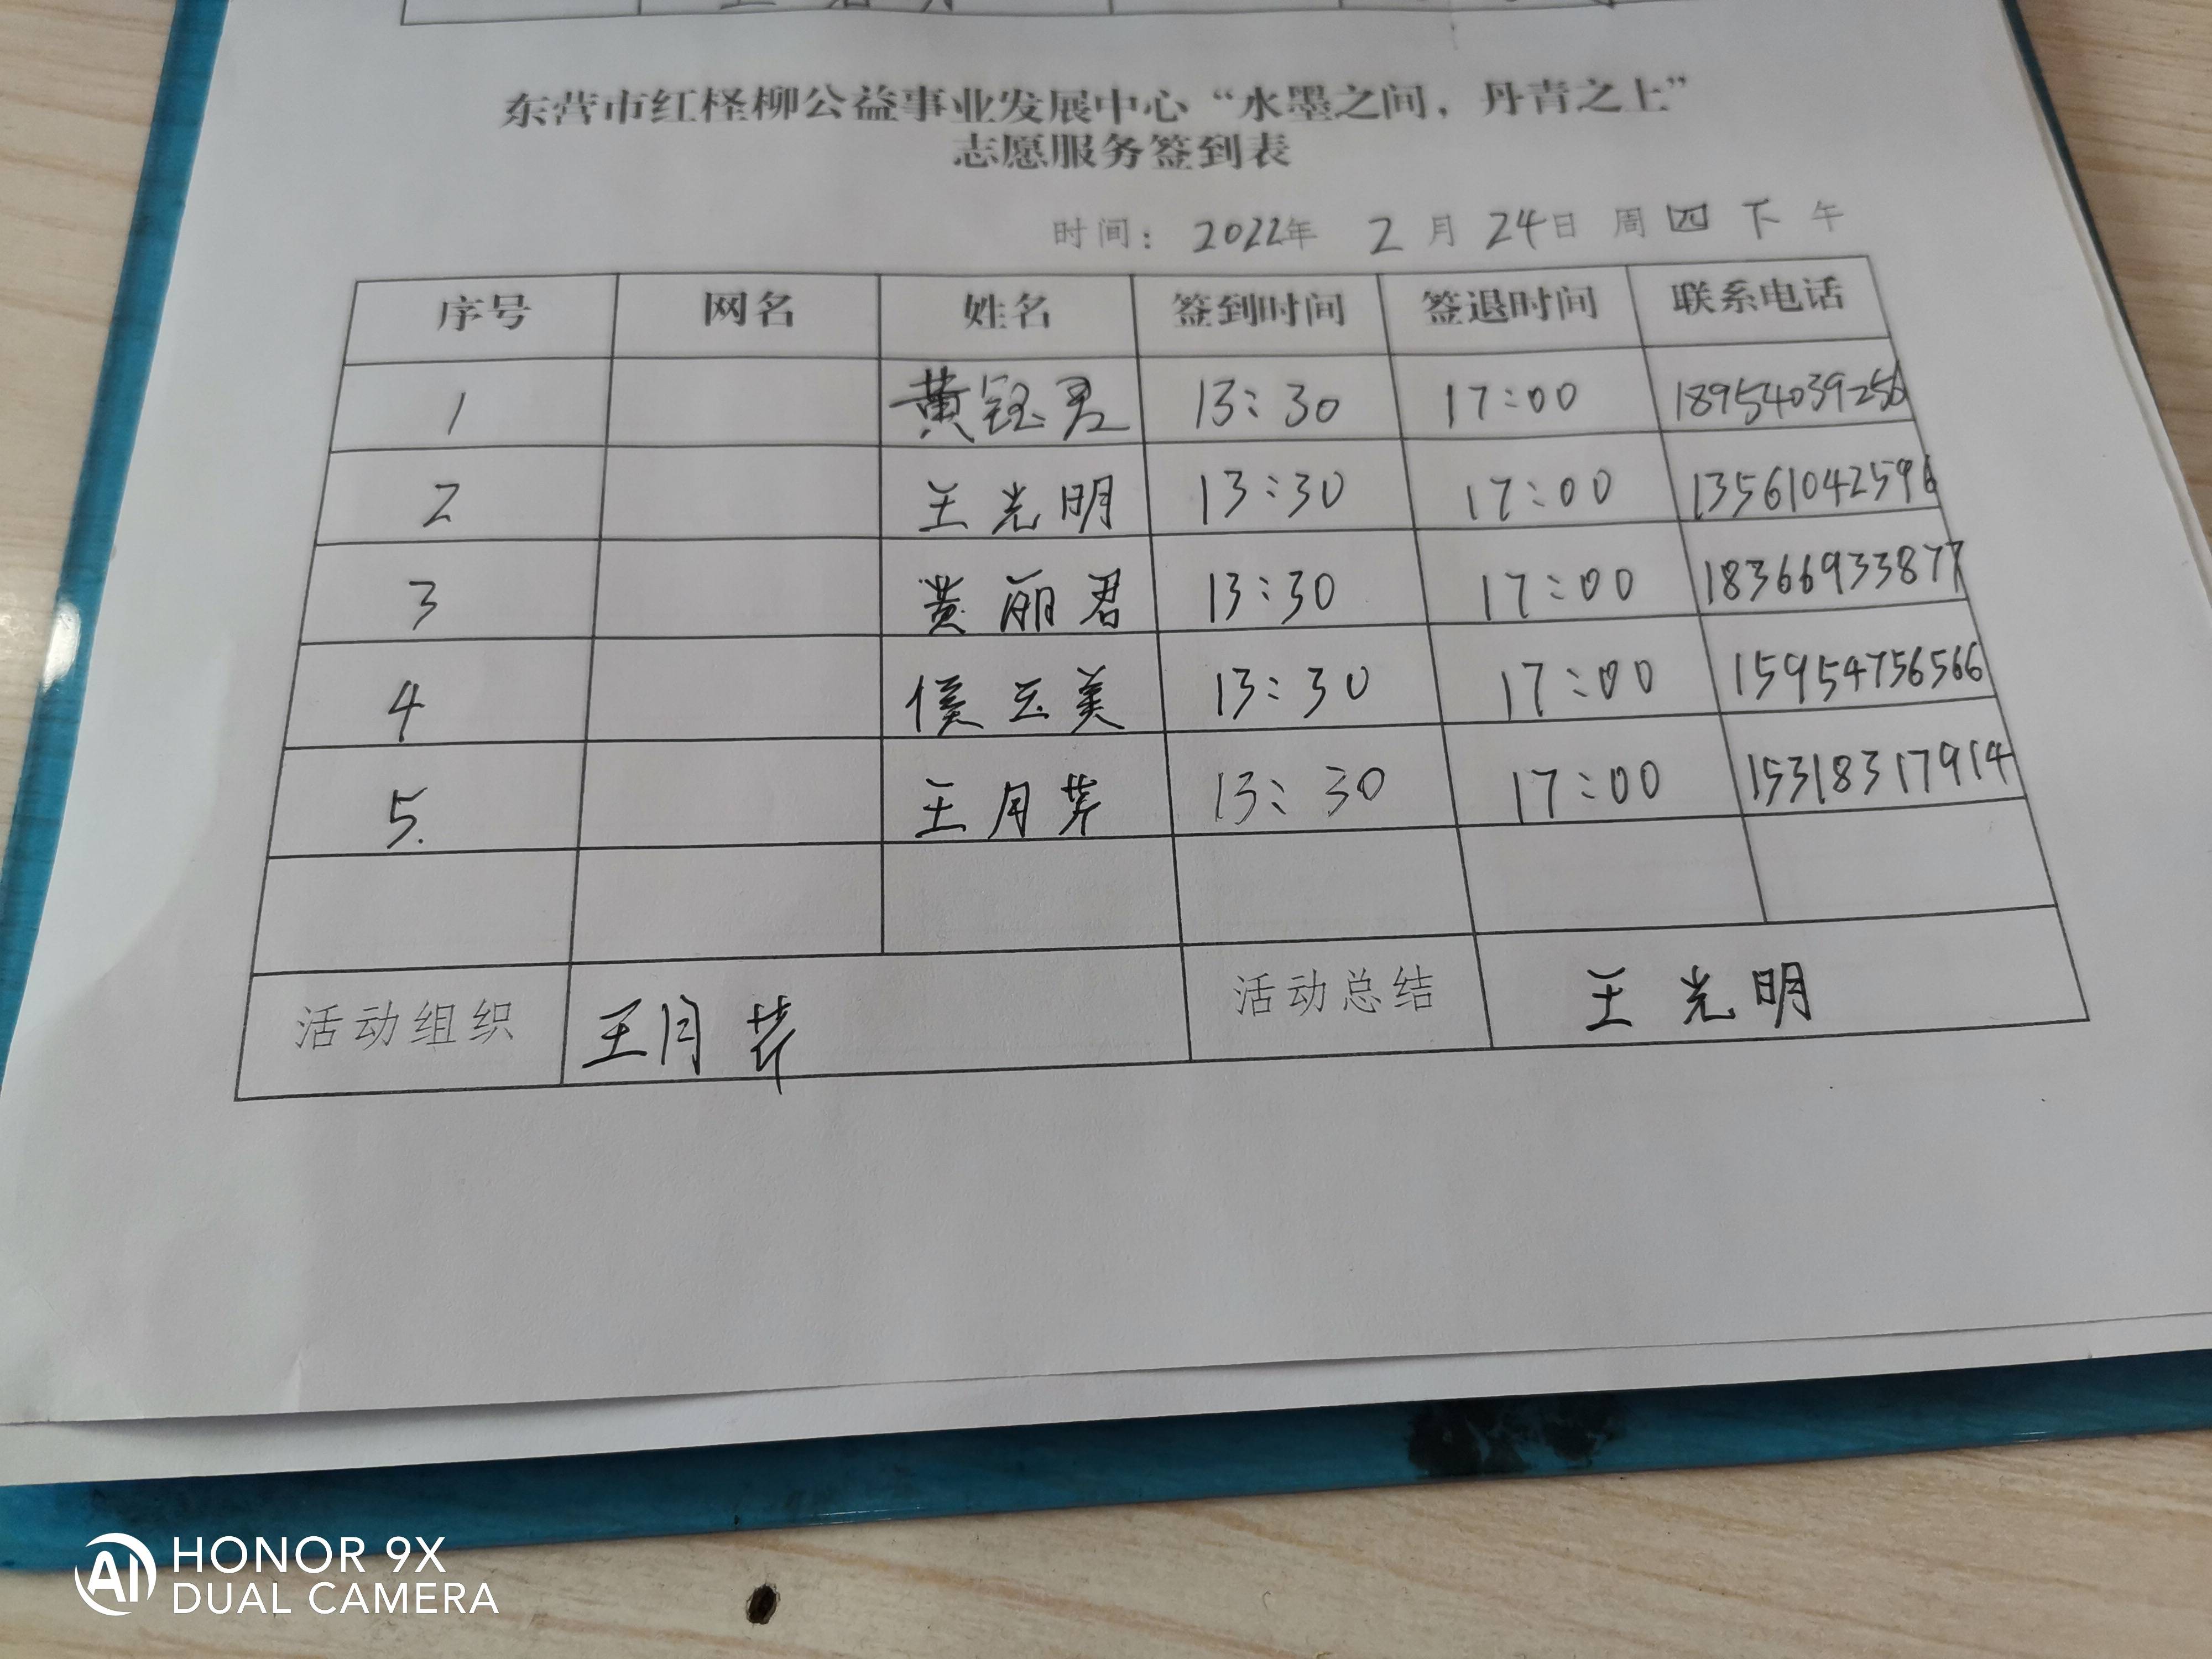 东营市红柽柳公益事业发展中心“水墨之间，丹青之上”
志愿服务签到表
时间： 2022年 2 月 24日 周 四 下 午
序号 网名 姓名 签到时间 签退时间 联系电话
1 黄钰君 13:30 17:00 18954039256
2 王光明 13:30 17:00 13561042596
3 黄丽君 13:30 17:00 18366933877
4 侯云美 13:30 17:00 15954756566
5. 王月芹 13:30 17:00 15318317914
活动组织 王月芹 活动总结 王光明
HONOR 9X
AI DUAL CAMERA